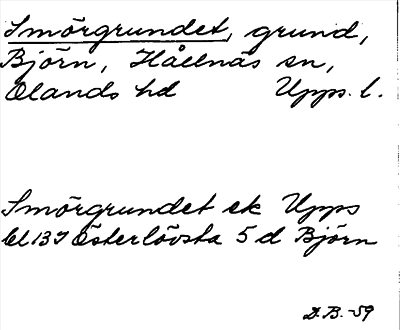 Smörgrundet, grund,
Björn, Hållnäs sn,
Olands hd Upps. l.
Smörgrundet ek Upps
bl 13 I Österlövsta 5 d Björn
D.B. -59